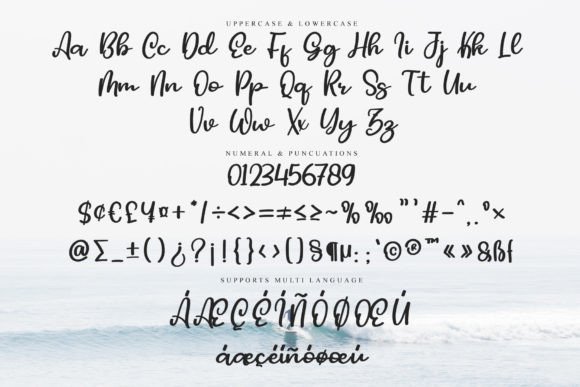 UPPERCASE & LOWERCASE
Aa Bb Cc Dd Ee Ff Gg Hh Ii Jj Kk Ll
Mm Nn Oo Pp Qq Rr Ss Tt Uu
Vv Ww Xx Yy Zz
NUMERAL & PUNCUATIONS
0123456789
$¢€£¥¤+*/÷<>=≠≤≥~%‰"'#-^,.°×
@∑_±()¿?¡!{}‹›[]§¶µ:;`©®™«»&ßf
SUPPORTS MULTI LANGUAGE
ÁÆÇÉÍÑÓØŒÚ
áæçéíñóøœú